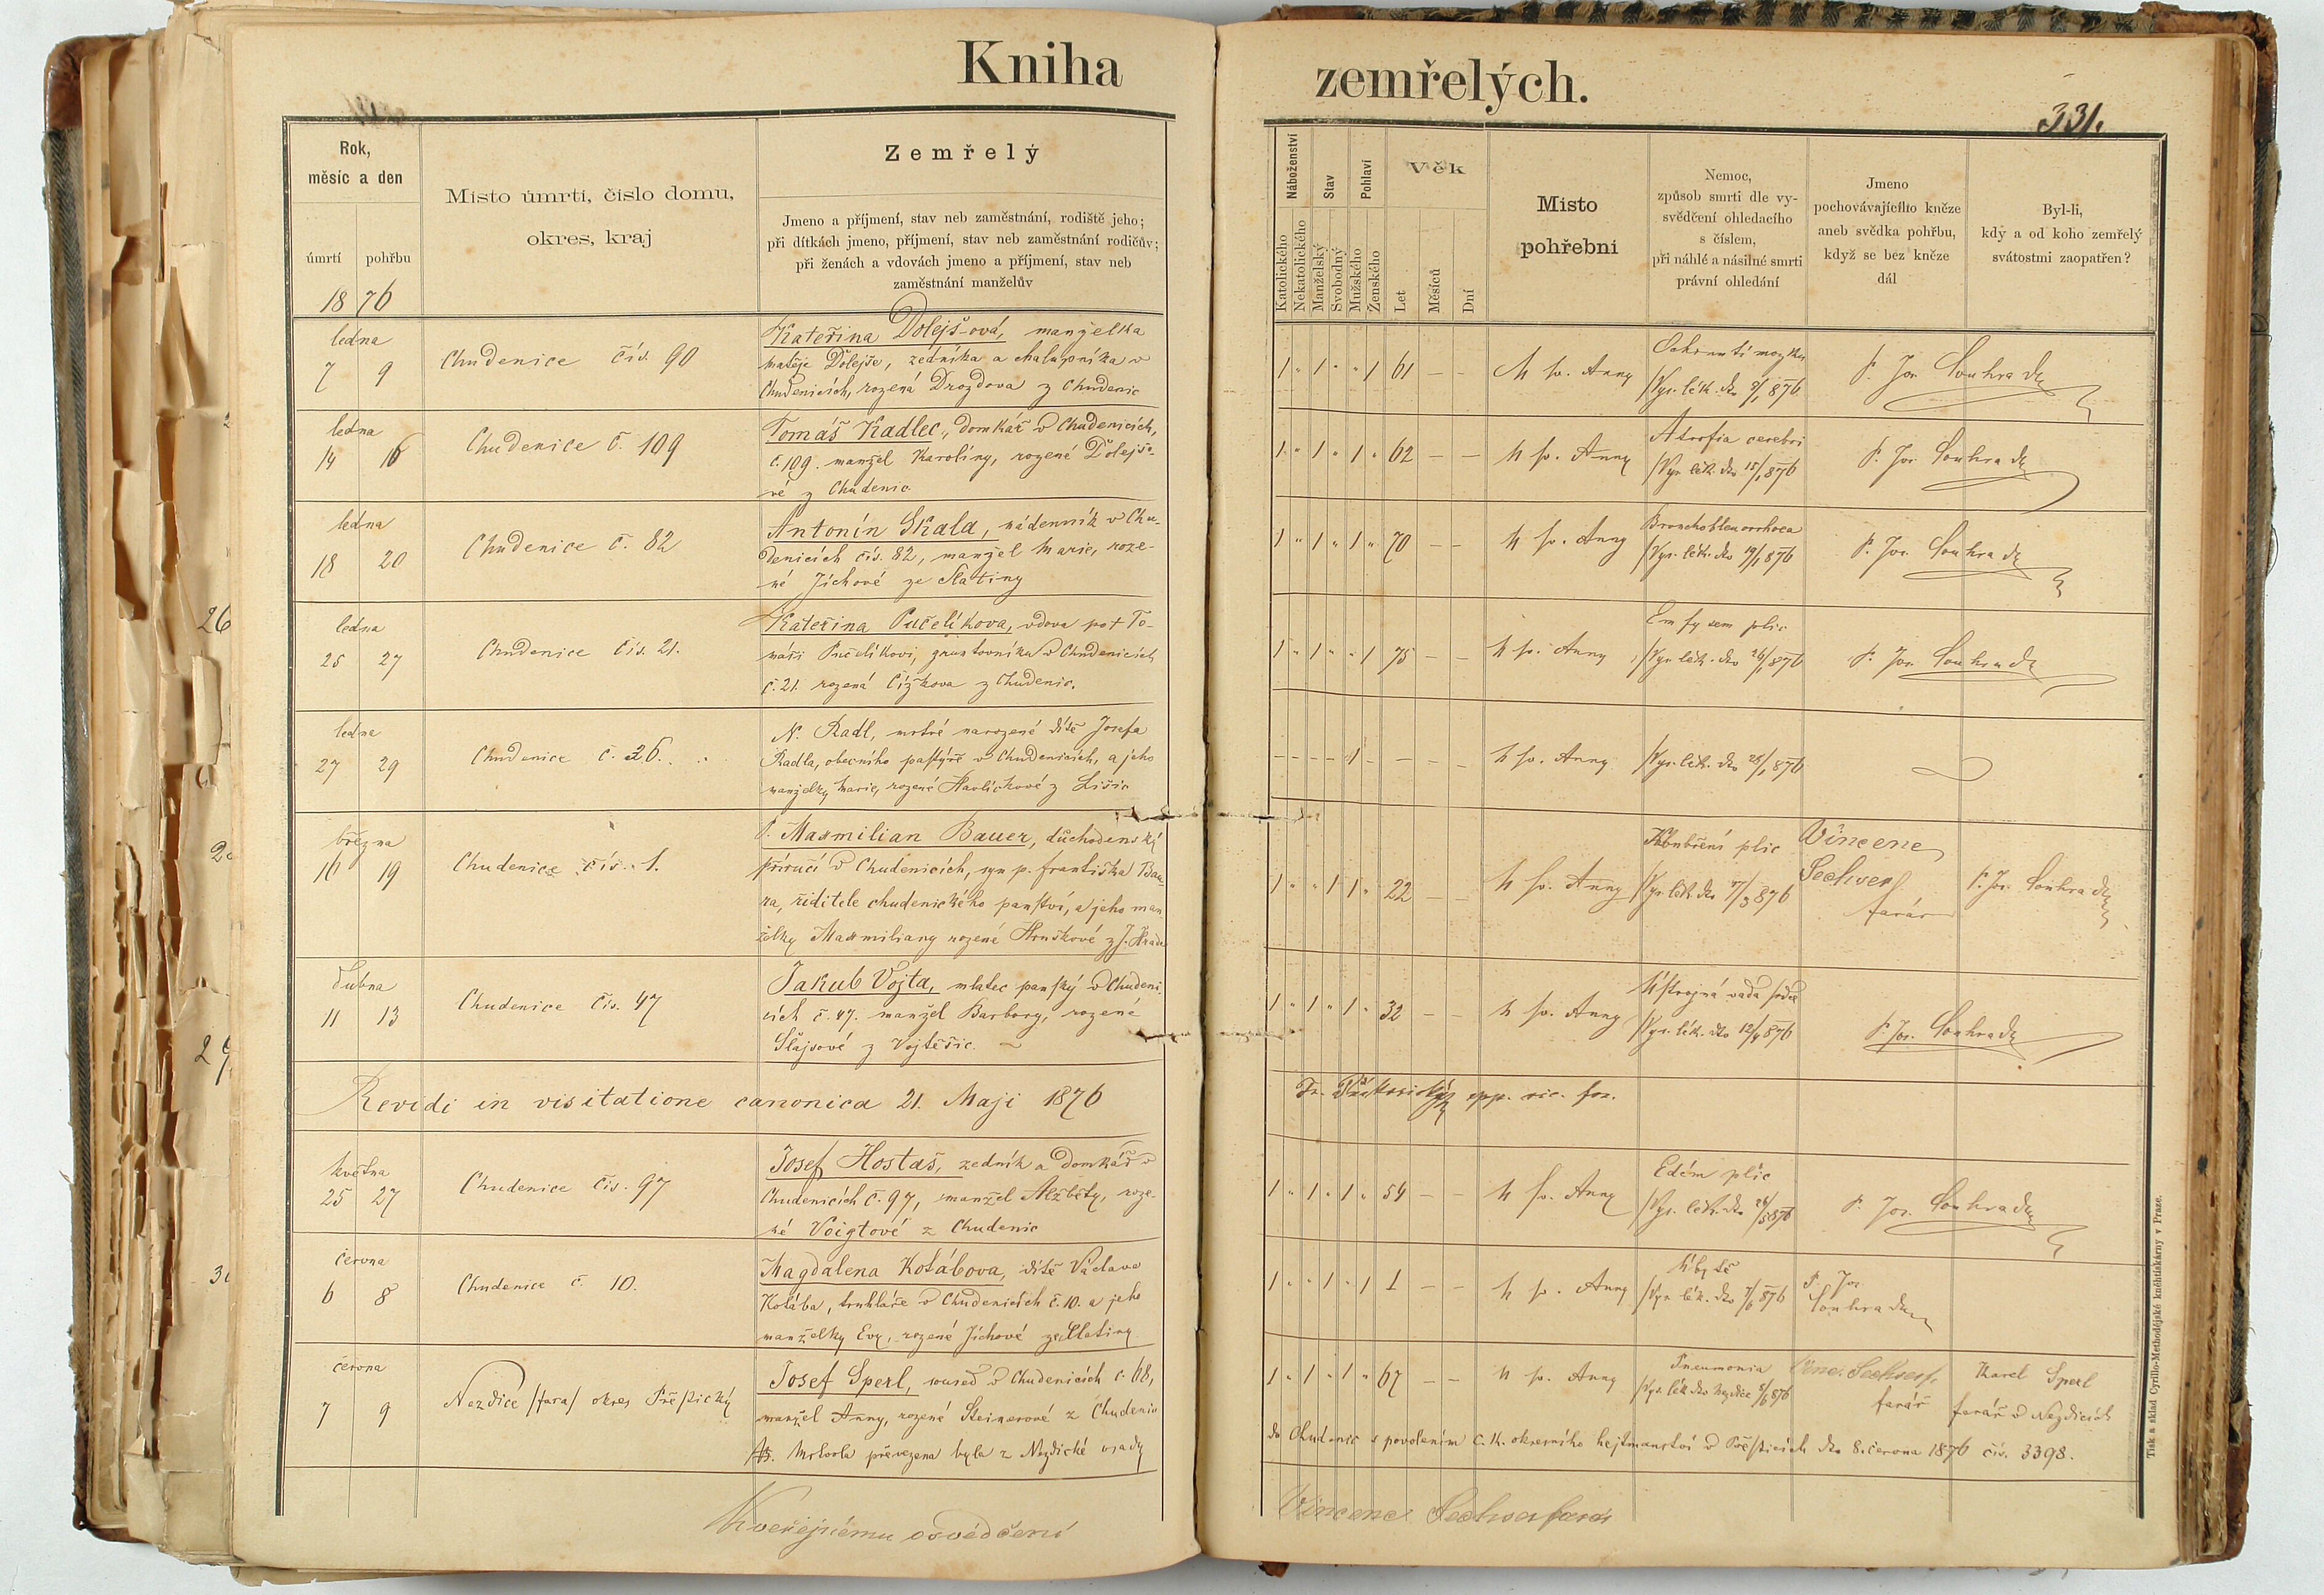 Kniha zemřelých.
331.
Rok,
měsíc a den
úmrtí pohřbu
18 76
Místo úmrtí, číslo domu,
okres, kraj
Zemřelý
Jmeno a příjmení, stav neb zaměstnání, rodiště jeho;
při dítkách jmeno, příjmení, stav neb zaměstnání rodičův;
při ženách a vdovách jmeno a příjmení, stav neb
zaměstnání manželův
Náboženství
Katolického
Nekatolického
Stav
Manželský
Svobodný
Pohlaví
Mužského
Ženského
Věk
Let
Měsíců
Dní
Místo
pohřební
Nemoc,
způsob smrti dle vy-
svědčení ohledacího
s číslem,
při náhlé a násilné smrti
právní ohledání
Jmeno
pochovávajícího kněze
aneb svědka pohřbu,
když se bez kněze
dál
Byl-li,
kdy a od koho zemřelý
svátostmi zaopatřen?
ledna
7 9
Chudenice čís. 90
Kateřina Dolejš-ová, manželka
Matěje Dolejše, zedníka a chalupníka v
Chudenicích, rozená Drozdova z Chudenic
1 " 1 " " 1 61 — —
U sv. Anny
Ochrnutí mozku
/Vys. lék. dto 8/1 876
P. Jos. Souhrada
ledna
14 16
Chudenice č. 109
Tomáš Kadlec, domkář v Chudenicích,
č. 109. manžel Karoliny, rozené Dolejšo-
vé z Chudenic
1 " 1 " 1 " 62 — —
U sv. Anny
Atrofia cerebri
/Vys. lék. dto 15/1 876
P. Jos. Souhrada
ledna
18 20
Chudenice č. 82
Antonín Skala, nádenník v Chu-
denicích čís. 82, manžel Marie, roze-
né Jíchové ze Slatiny
1 " 1 " 1 " 70 — —
U sv. Anny
Bronchoblenorrhoea
/Vys. lék. dto 19/1 876
P. Jos. Souhrada
ledna
25 27
Chudenice čís. 21.
Kateřina Pučelíkova, vdova po † To-
máši Pučelíkovi, gruntovníku v Chudenicích
č. 21. rozená Čížkova z Chudenic.
1 " 1 " " 1 75 — —
U sv. Anny
Emfysem plic
/Vys. lék. dto 26/1 876
P. Jos. Souhrada
ledna
27 29
Chudenice č. 26.
N. Radl, mrtvě narozené dítě Josefa
Radla, obecního pastýře v Chudenicích, a jeho
manželky Marie, rozené Havlíčkové z Lišic
— — — — 1 — — — —
U sv. Anny
/Vys. lék. dto 28/1 876
března
16 19
Chudenice čís. 1.
P. Maxmilian Bauer, důchodenský
příručí v Chudenicích, syn p. Františka Bau-
ra, ředitele chudenického panství, a jeho man-
želky Maxmiliany rozené Hruškové z J. Hradce
1 " " 1 1 " 22 — —
U sv. Anny
plic
/Vys. lék. dto 17/3 876
Vincenc
Sechser
farář
P. Jos. Souhrada
dubna
11 13
Chudenice čís. 47
Jakub Vojta, mlatec panský v Chudeni-
cích č. 47. manžel Barbory, rozené
Šlajsové z Vojtěšic.
1 " 1 " 1 " 32 — —
U sv. Anny
Ústrojná vada srdce
/Vys. lék. dto 12/4 876
P. Jos. Souhrada
Revidi in visitatione canonica 21. Maji 1876
Fr. epp. vic. for.
května
25 27
Chudenice čís. 97
Josef Hostaš, zedník a domkář v
Chudenicích č. 97, manžel Alžběty, roze-
né Voigtové z Chudenic
1 " 1 " 1 " 54 — —
U sv. Anny
Edém plic
/Vys. lék. dto 26/5 876
P. Jos. Souhrada
června
6 8
Chudenice č. 10.
Magdalena Kotábova, dítě Václava
Kotába, truhláře v Chudenicích č. 10. a jeho
manželky Evy, rozené Jíchové ze Slatiny
1 " " 1 " 1 1 — —
U sv. Anny
Úbytě
/Vys. lék. dto 7/6 876
P. Jos.
Souhrada
června
7 9
Nezdice /fara/ okres Přeštický
Josef Sperl, soused v Chudenicích č. 68,
manžel Anny, rozené Steinerové z Chudenic
1 " 1 " 1 " 67 — —
U sv. Anny
Pneumonia
/Vys. lék. dto Nezdice 8/6 876
Vinc. Sechser,
farář
Karel Sperl
farář v Nezdicích
NB. Mrtvola převezena byla z Nezdické osady
do Chudenic s povolením c. k. okresního hejtmanství v Přešticích dto 8. června 1876 čís. 3398.
K veřejnému osvědčení
Vincenc Sechser farář
Tisk a sklad Cyrillo-Methodějské knihtiskárny v Praze.